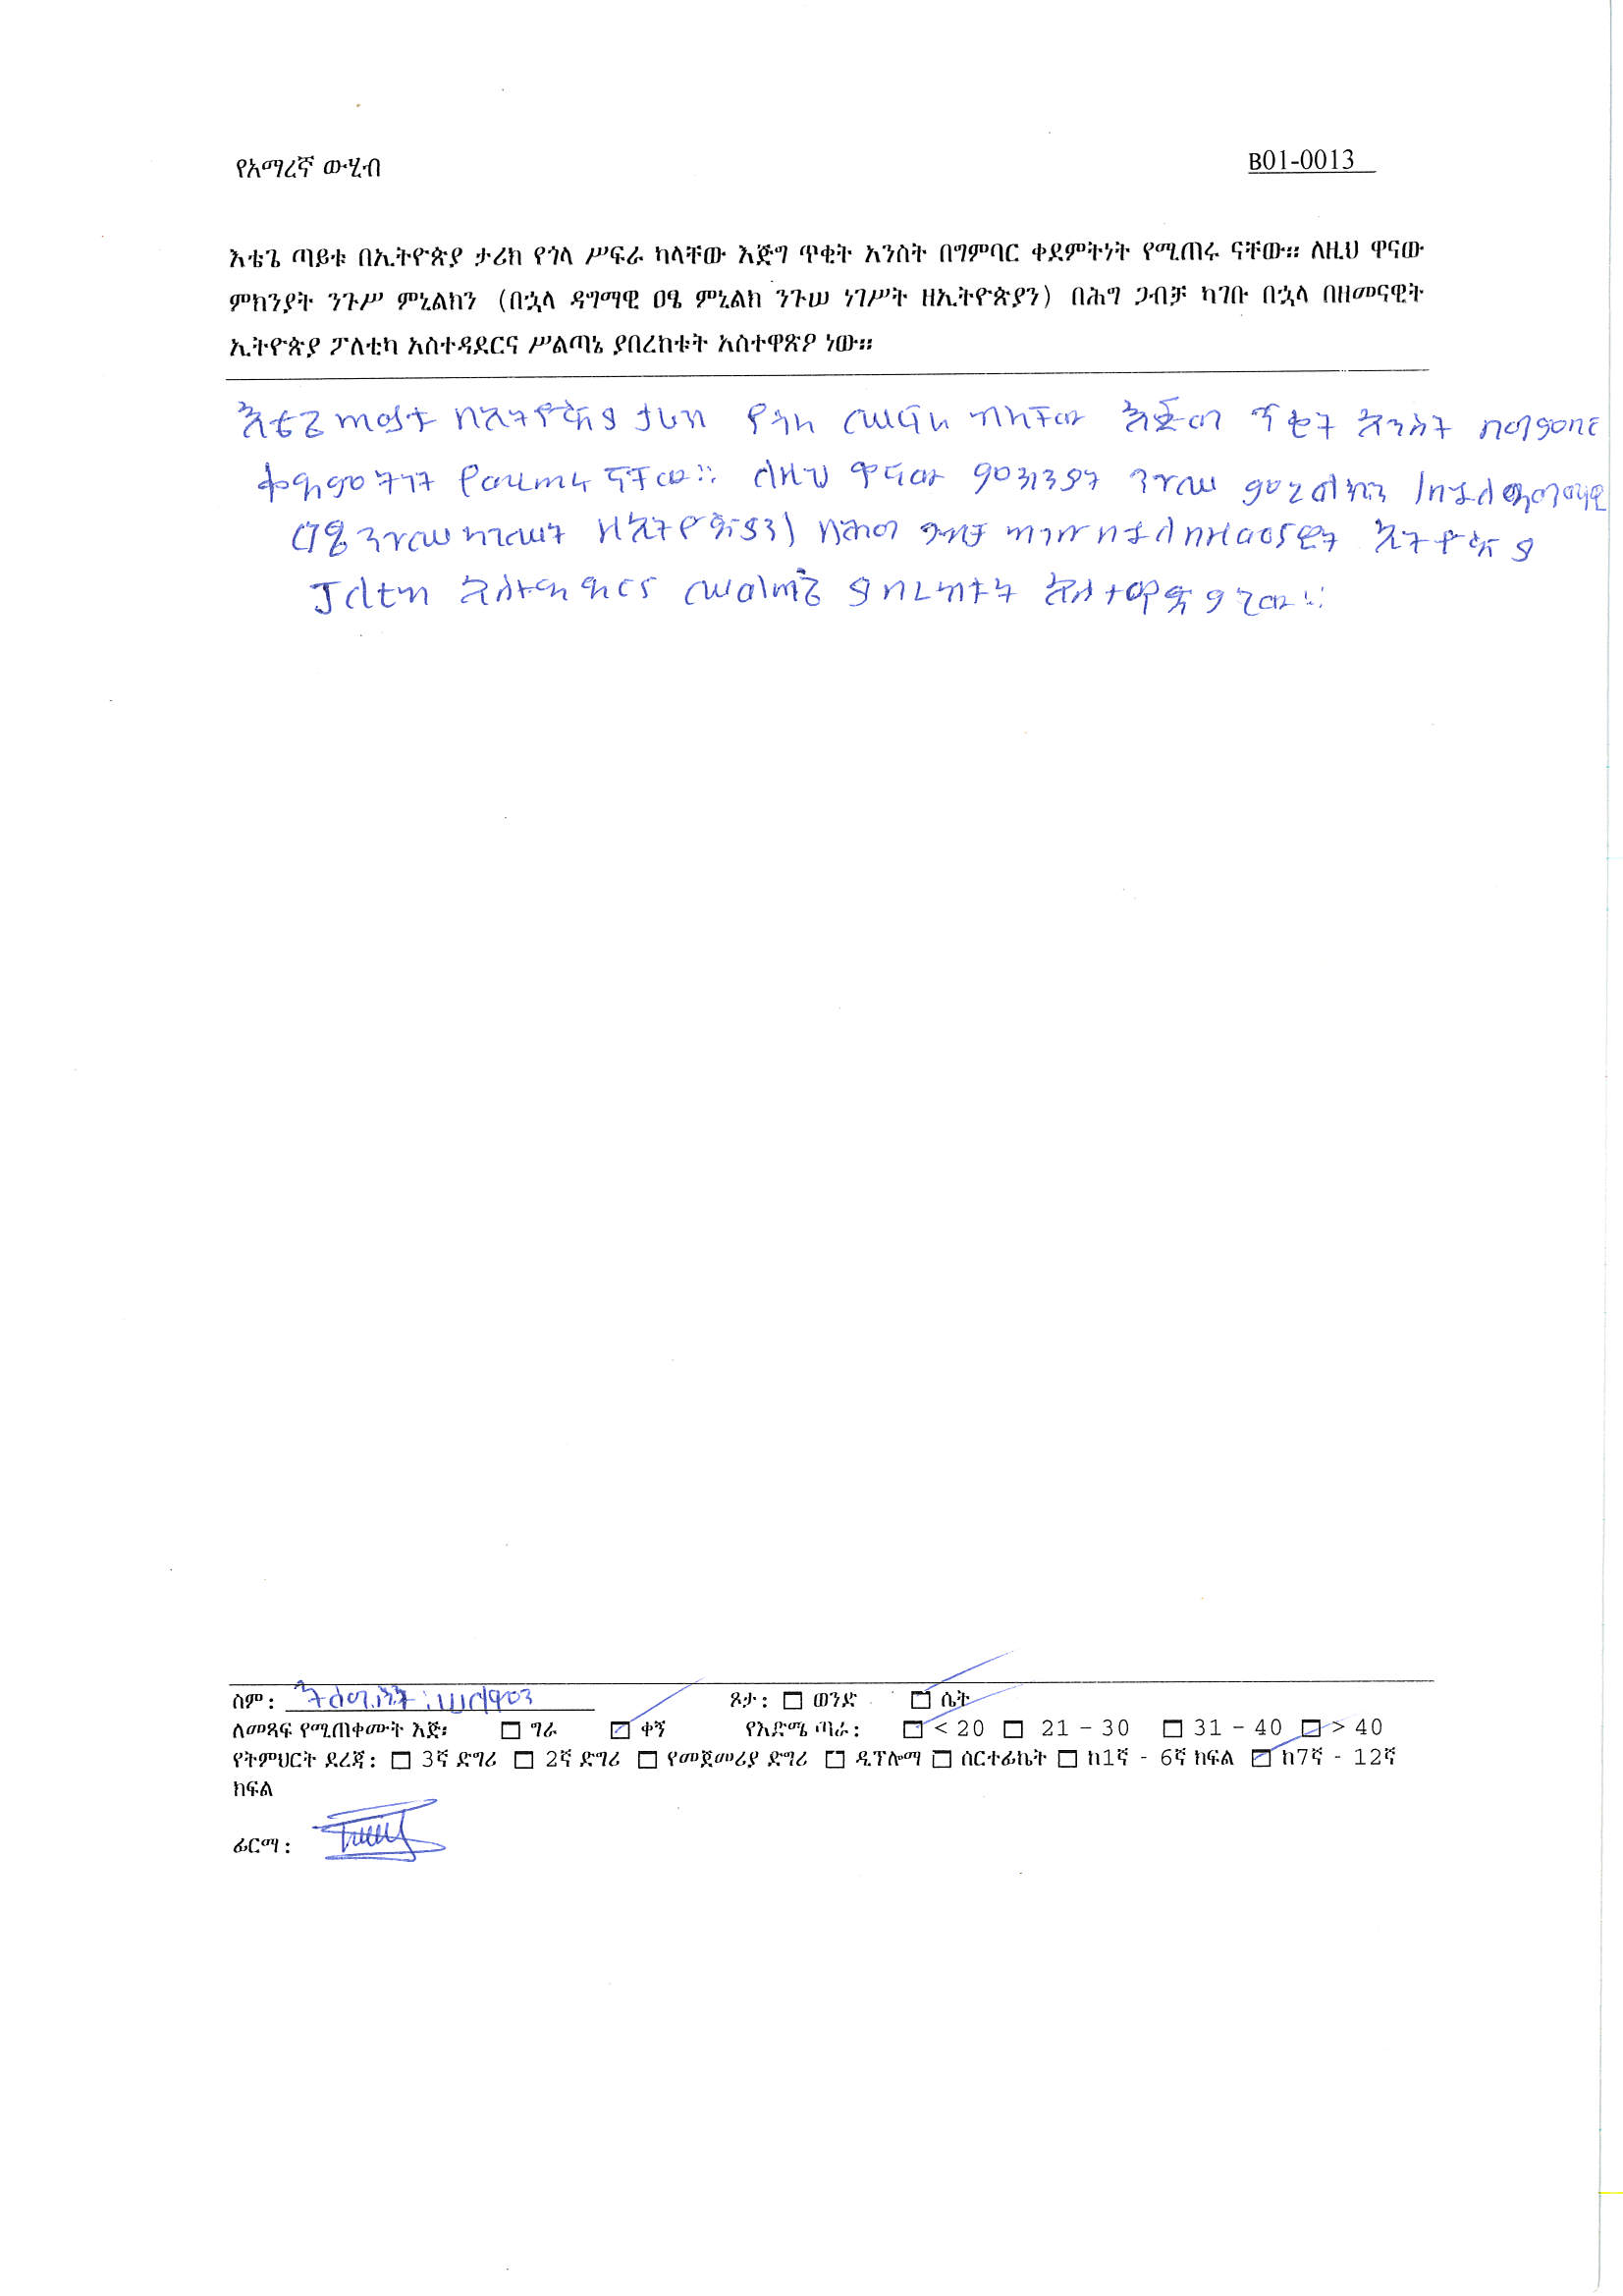 የአማረኛ ውሂብ
B01-0013
እቴጌ ጣይቱ በኢትዮጵያ ታሪክ የጎላ ሥፍራ ካላቸው እጅግ ጥቂት አንስት በግምባር ቀደምትነት የሚጠሩ ናቸው። ለዚህ ዋናው
ምክንያት ንጉሥ ምኒልክን (በኋላ ዳግማዊ ዐፄ ምኒልክ ንጉሠ ነገሥት ዘኢትዮጵያን) በሕግ ጋብቻ ካገቡ በኋላ በዘመናዊት
ኢትዮጵያ ፖለቲካ አስተዳደርና ሥልጣኔ ያበረከቱት አስተዋጽዖ ነው።
እቴጌ ጣይቱ በኢትዮጵያ ታሪክ የጎላ ሥፍራ ካላቸው እጅግ ጥቂት አንስት በግምባር
ቀዳምትነት የሚጠሩ ናቸው። ለዚህ ዋናው ምክንያት ንጉሥ ምኒልክን /በኋላ ዳግማዊ
ዐፄ ንጉሠ ነገሥት ዘኢትዮጵያን) በሕግ ጋብቻ ካገቡ በኋላ በዘመናዊት ኢትዮጵያ
ፖለቲካ አስተዳዳርና ሥልጣኔ ያበረከቱት አስተዋጽዖ ነው።
ስም:
ጾታ: ወንድ ሴት
ለመጻፍ የሚጠቀሙት እጅ፡ ግራ ቀኝ የእድሜ ጣራ: < 20 21 – 30 31 – 40 > 40
የትምህርት ደረጃ: 3ኛ ድግሪ 2ኛ ድግሪ የመጀመሪያ ድግሪ ዲፕሎማ ሰርተፊኬት ከ1ኛ - 6ኛ ክፍል ከ7ኛ - 12ኛ
ክፍል
ፊርማ: